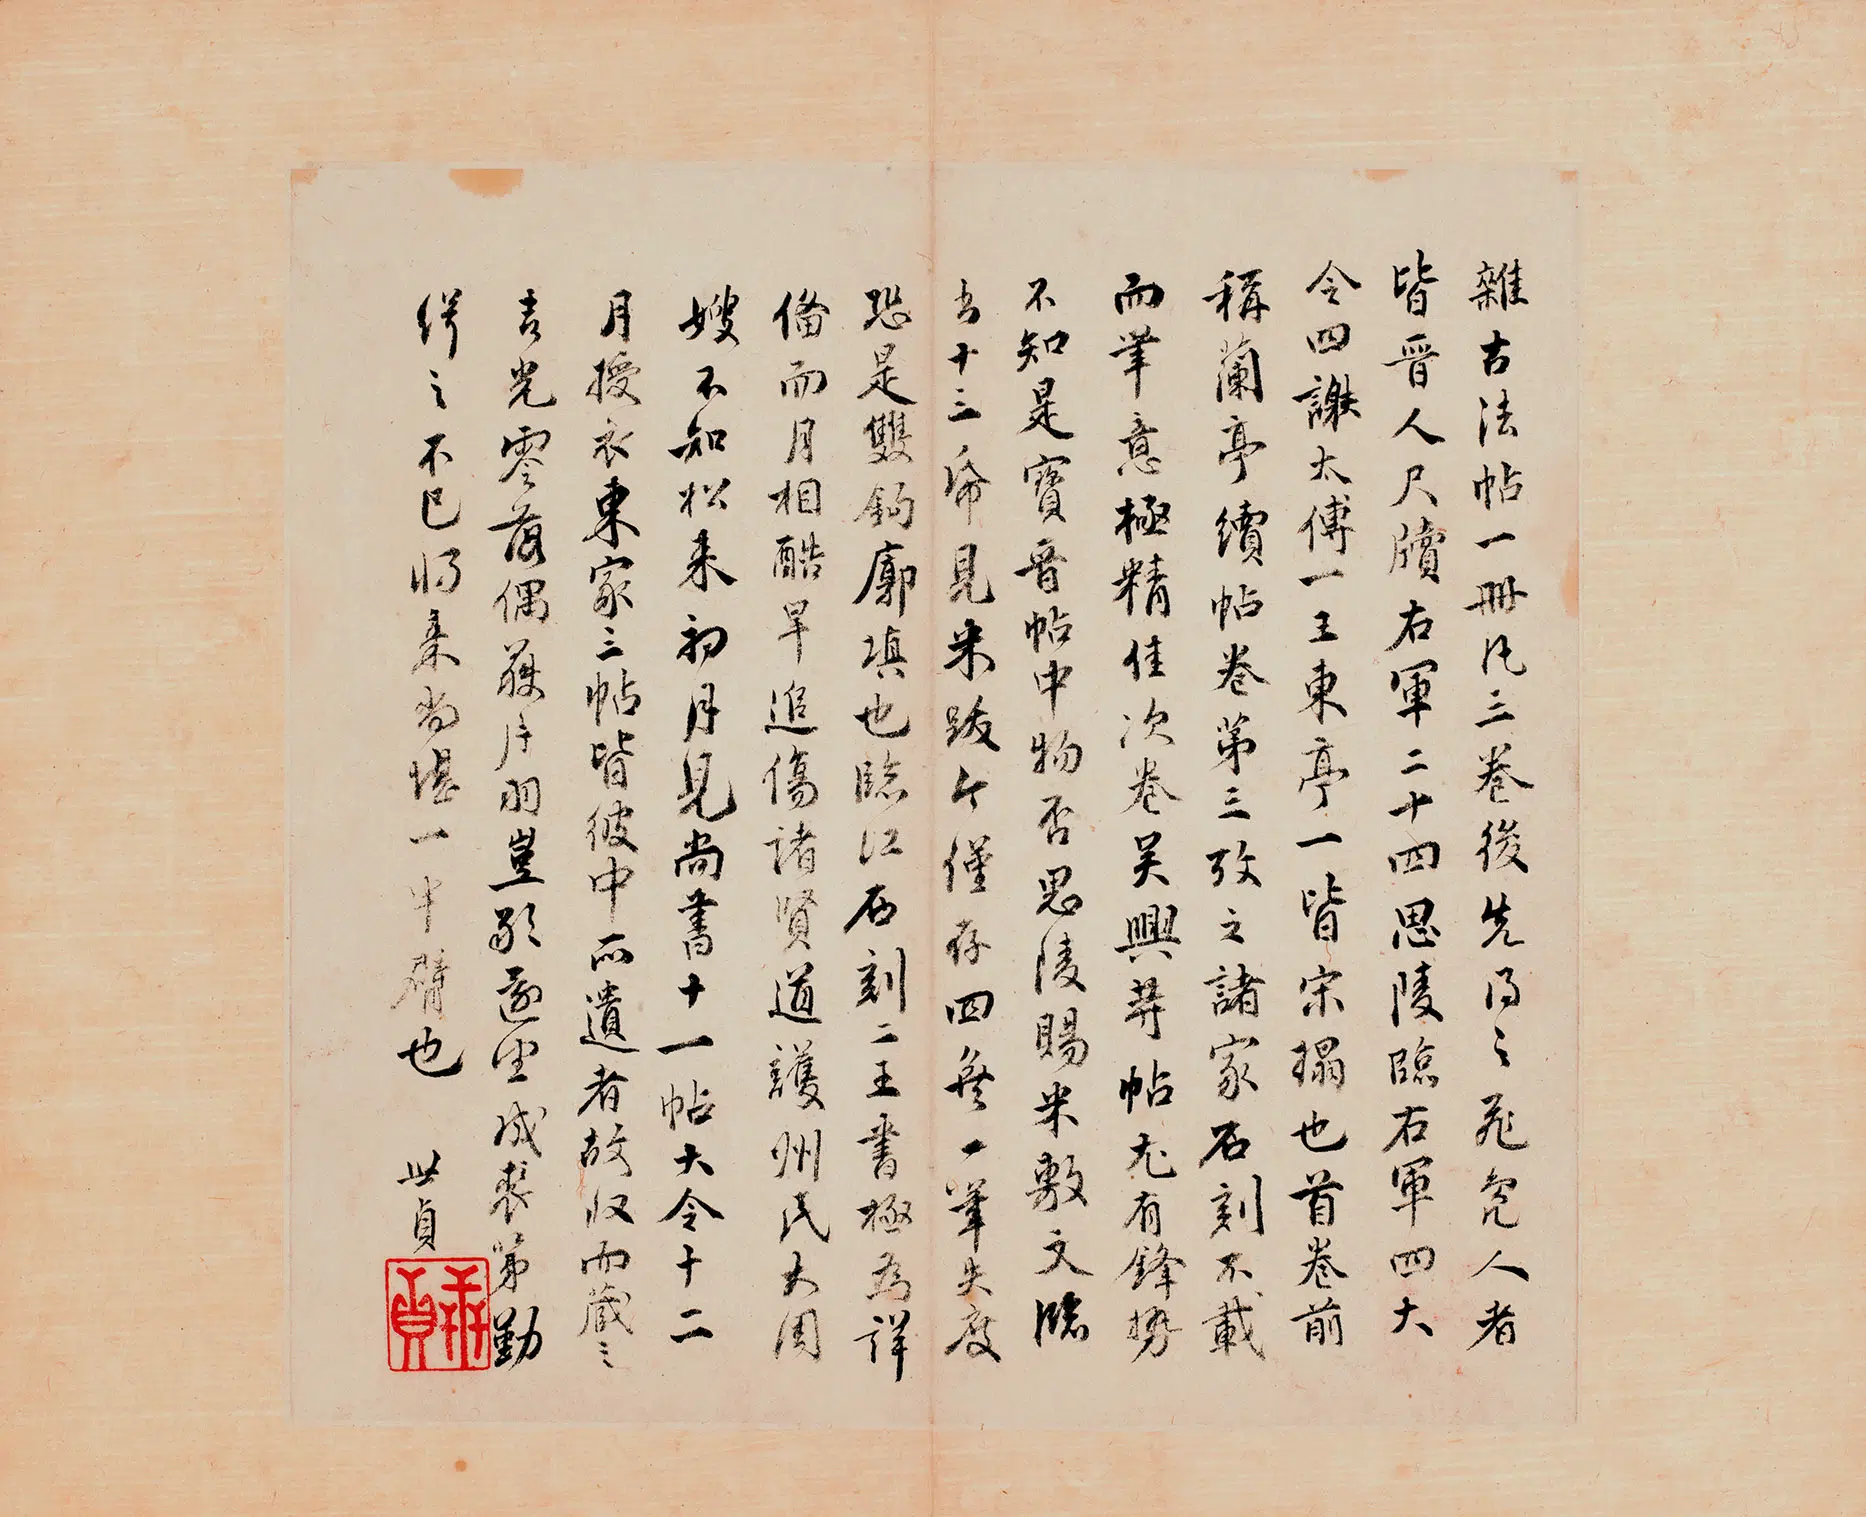 雜古法帖一冊凡三卷後先得之飛鳧人者
皆晉人尺牘右軍二十四思陵臨右軍四大
令四謝太傅一王東亭一皆宋搨也首卷前
稱蘭亭續帖卷第三攷之諸家石刻不載
而筆意極精佳次卷吳興等帖尤有鋒勢
不知是寶晉帖中物否思陵賜米敷文臨
右十三帋見米跋今僅存四無一筆失度
恐是雙鉤廓填也臨江石刻二王書極為詳
備而月相酷旱追傷諸賢道護州民大周
嫂不知松來初月見尚書十一帖大令十二
月授衣東家三帖皆彼中所遺者故收而藏之
吉光零落偶獲片羽豈敢遽望成裘第勤
緝之不已將來尚堪一半臂也
世貞